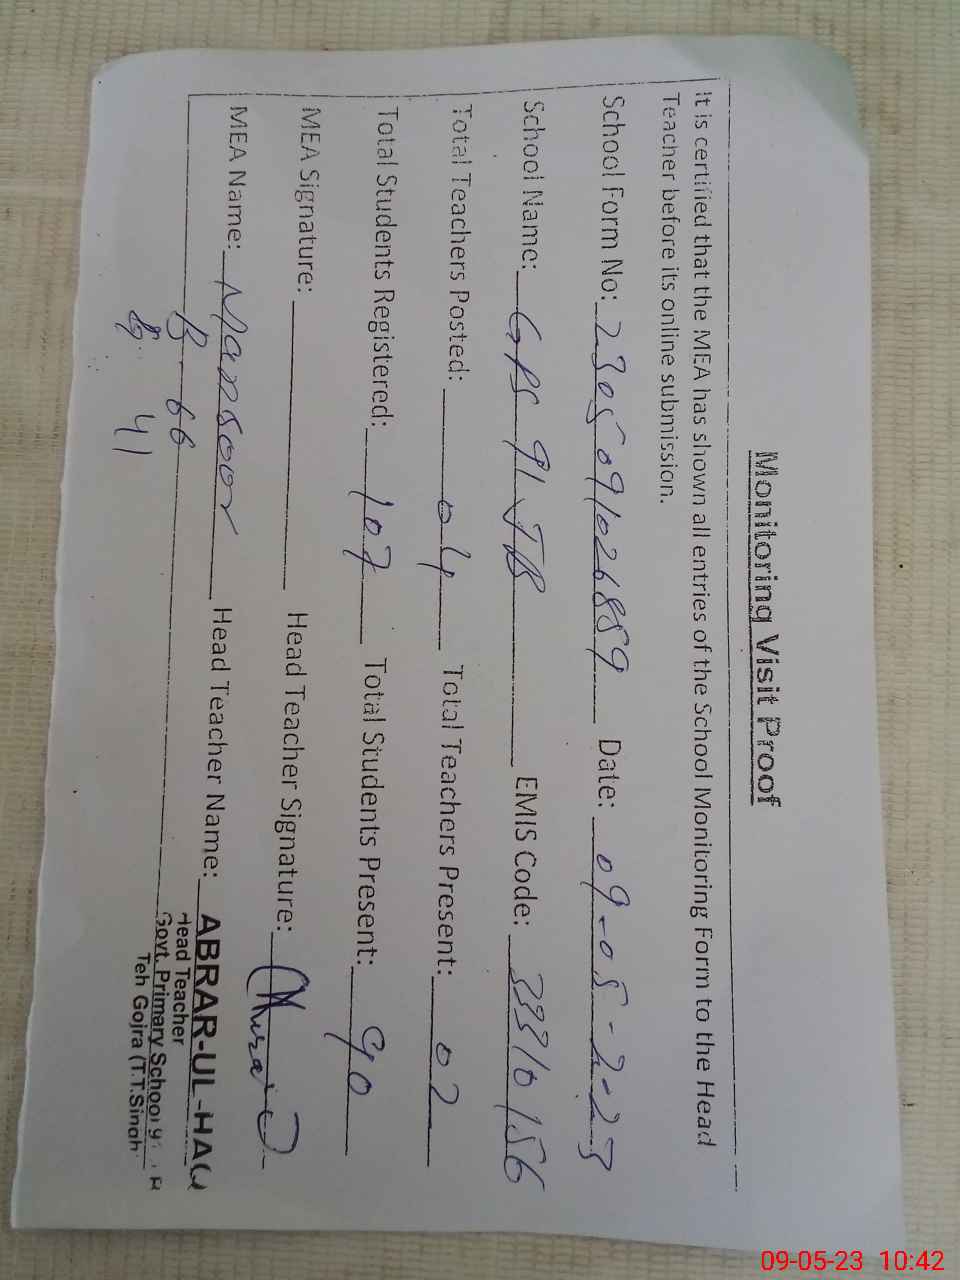 Monitoring Visit Proof
It is certified that the MEA has shown all entries of the School Monitoring Form to the Head
Teacher before its online submission.
School Form No: 2305091026889 Date: 09-05-2-23
School Name: GPS 91 JB EMIS Code: 33310156
Total Teachers Posted: 04 Total Teachers Present: 02
Total Students Registered: 107 Total Students Present: 90
MEA Signature: Head Teacher Signature:
MEA Name: Mansoor Head Teacher Name: ABRAR-UL-HAQ
Head Teacher
B 66 Govt. Primary School 91
41 Teh Gojra (T.T.Singh
09-05-23 10:42